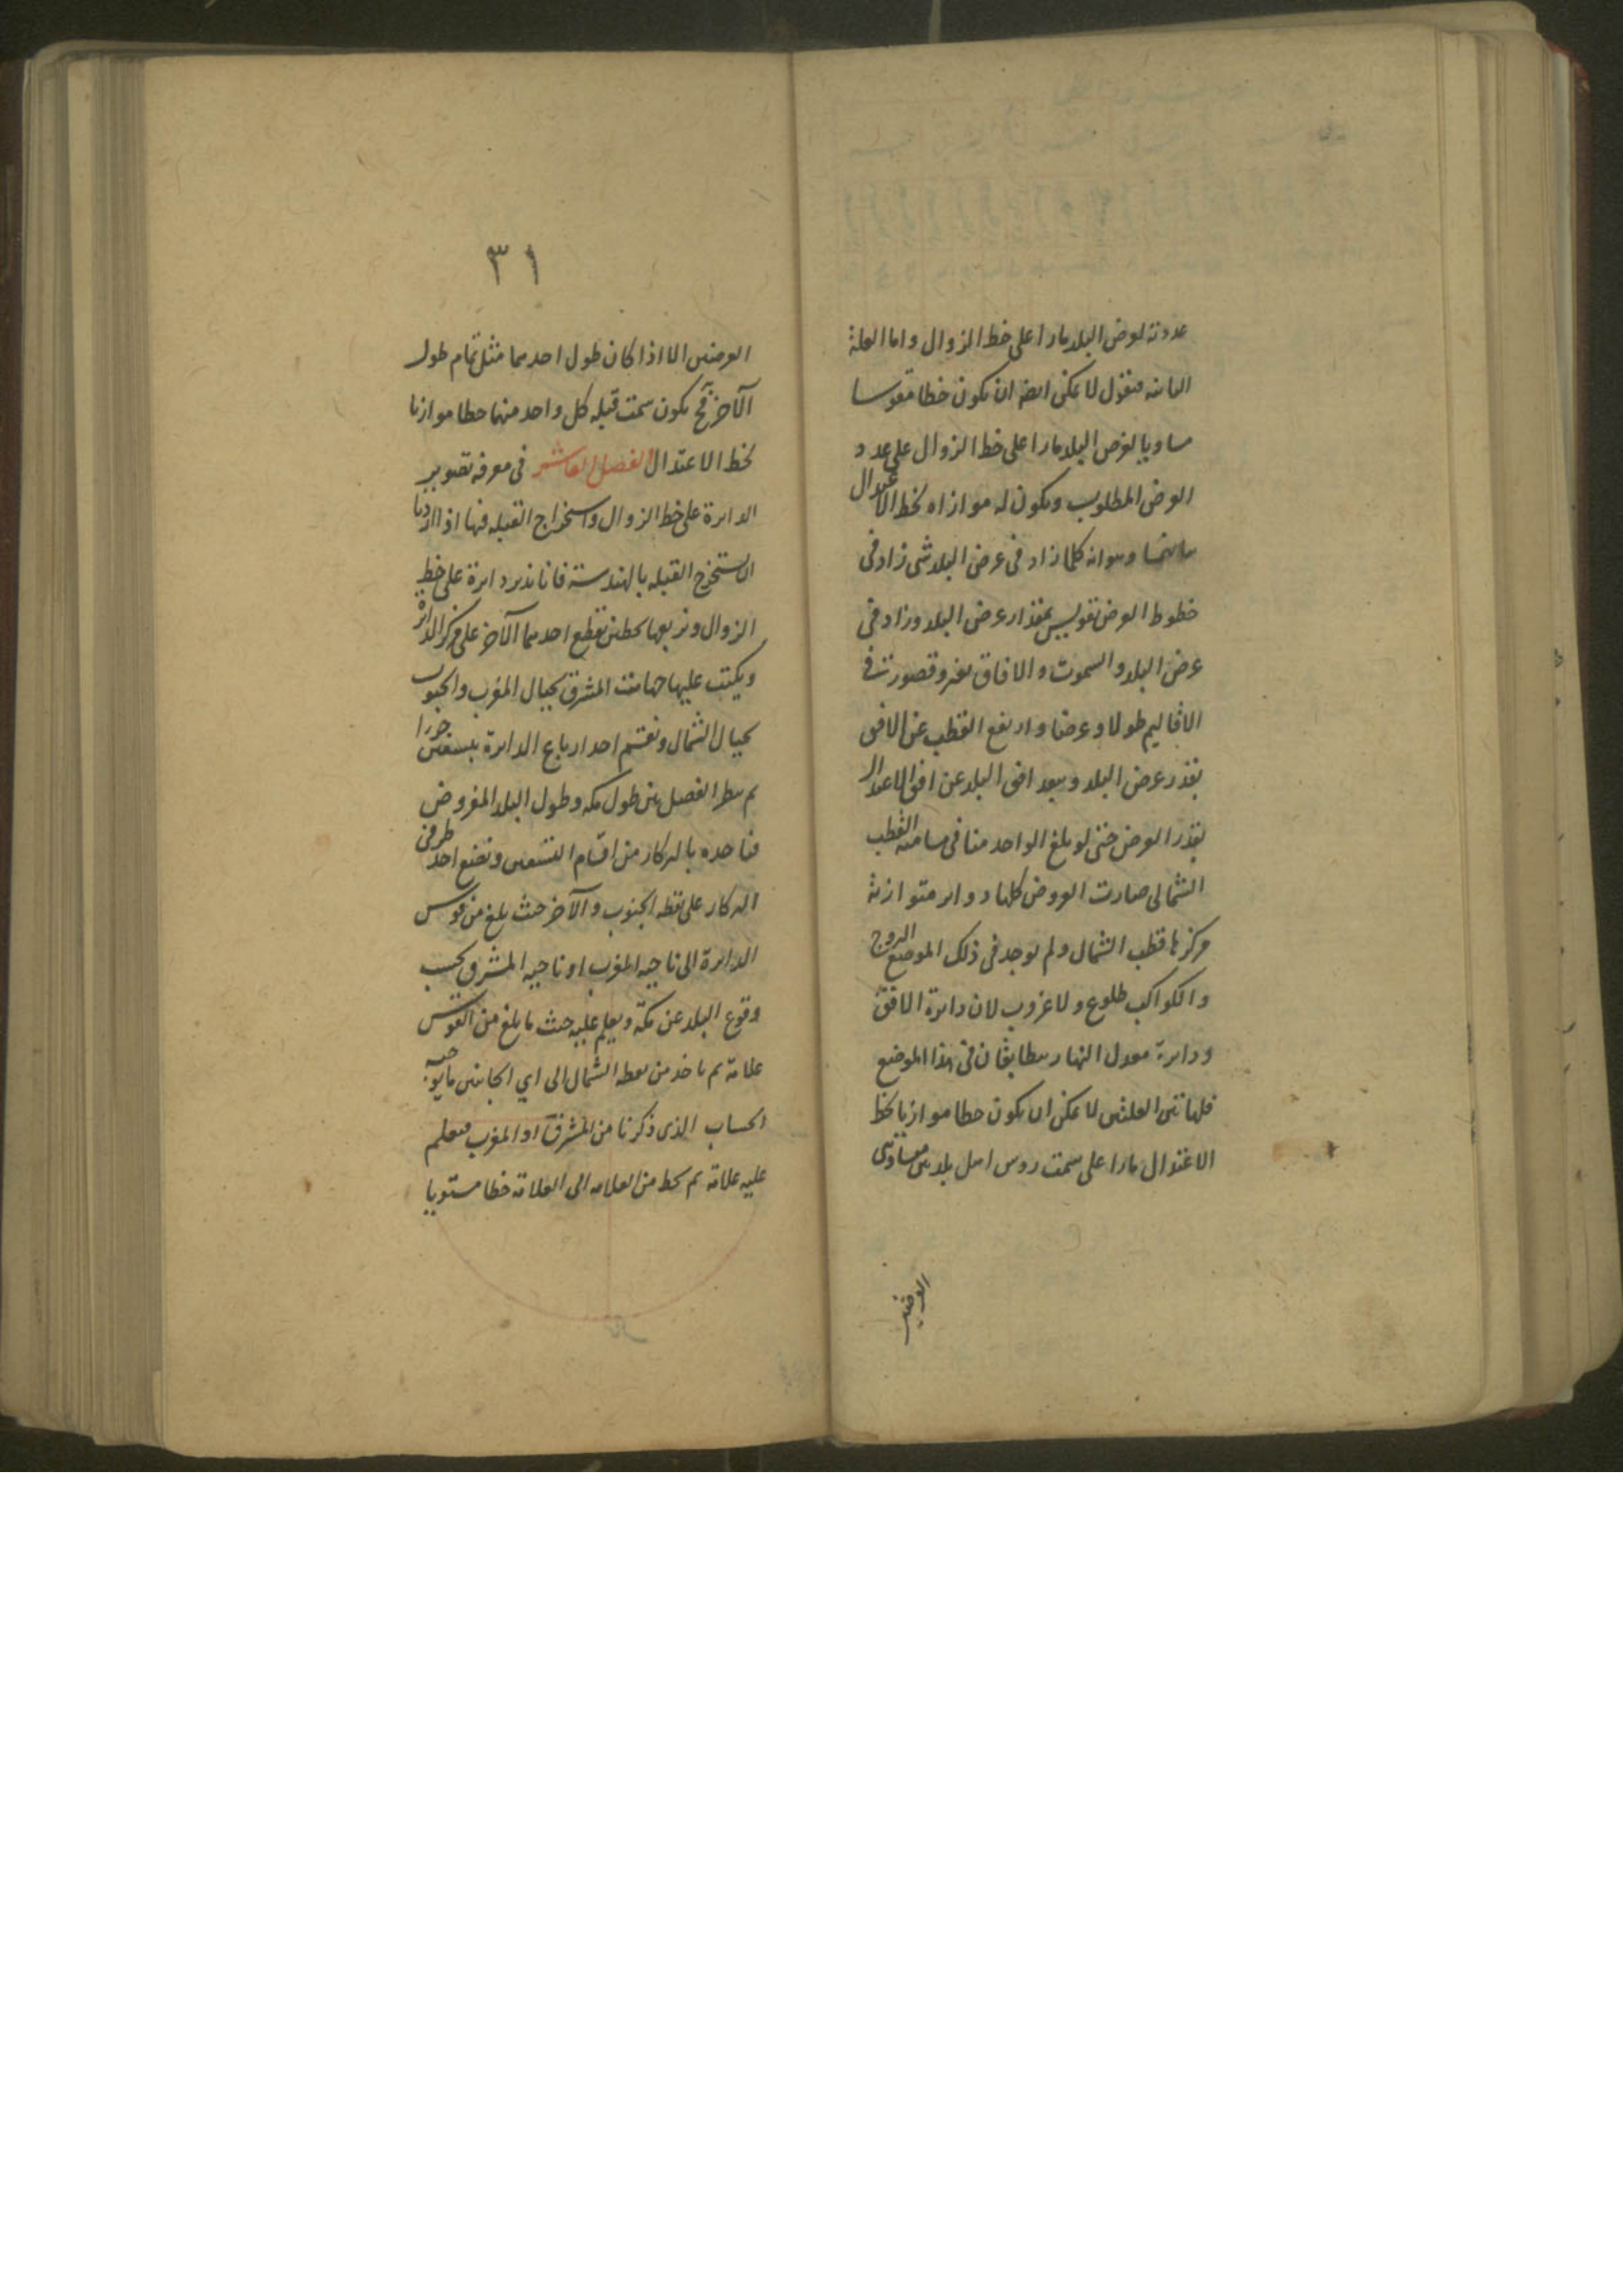 عدوته لعرض البلد مارا على خط الزوال واما العلة
الثانيه فنقول لا يمكن ايضا ان يكون خطا مقوسا
مساويا لعرض البلد مارا على خط الزوال على عدد
العرض المطلوب ويكون له موازاه لخط الاعتدال
وهوانه كلما زاد فى عرض البلد شى زاد فى
خطوط العرض تقويس بمقدار عرض البلد وزاد فى
عرض البلد والسموت والافاق
الاقاليم طولا وعرضا وارتفع القطب عن الافق
بقدر عرض البلد وبعد افق البلد عن افق الاعتدال
بقدر العرض حتى لو بلغ الواحد منا فى مسامته القطب
الشمالى صارت العروض كلها دواير متوازية
مركزها قطب الشمال ولم يوجد فى ذلك الموضع البروج
والكواكب طلوع ولا غروب لان دايرة الافق
ودايرة معدل النهار يتطابقان فى هذا الموضع
فلهاتين العلتين لا يمكن ان يكون خطا موازيا لخط
الاعتدال مارا على سمت روس اهل بلدين متساوتى
العرضين
٣١
العرضين الا اذا كان طول احدهما مثل تمام طول
الآخر فح يكون سمت قبله كل واحد منهما خطا موازيا
لخط الاعتدال الفصل العاشر فى معرفه تصوير
الدايرة على خط الزوال واستخراج القبله فيها اذا اردنا
ان نستخرج القبله بالهندسة فانا ندير دايرة على خط
الزوال ونربعها بخطين يقطع احدهما الآخر على مركز الدايرة
ويكتب عليها جهات المشرق بحيال المغرب والجنوب
بحيال الشمال ونقسم احد ارباع الدايرة بتسعين جزءا
ثم ننظر الفصل بين طول مكه وطول البلد المفروض
فناخذه بالبركار من اقسام التسعين ونضع احد طرفى
البركار على نقطه الجنوب والآخر حيث بلغ من قوس
الدايرة الى ناحيه المغرب او ناحيه المشرق بحسب
وقوع البلد عن مكة ويعلم عليه حيث ما بلغ من القوس
علامة ثم ناخذ من نقطه الشمال الى اي الجانبين ما يوجبه
الحساب الذى ذكرنا من المشرق او المغرب فنعلم
عليه علامة ثم نخط من العلامه الى العلامة خطا مستويا